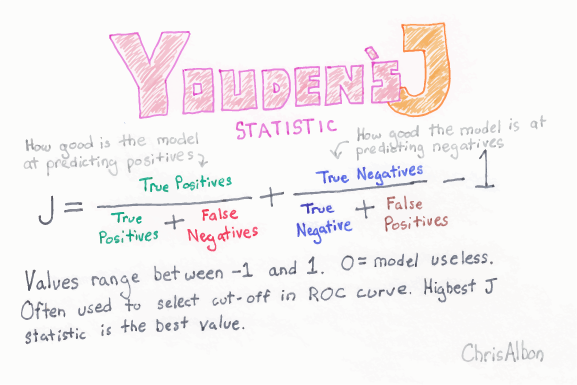 YOUDEN'S J
STATISTIC
How good is the model
at predicting positives
How good the model is at
predicting negatives
J = True Positives / True Positives + False Negatives + True Negatives / True Negative + False Positives - 1
Values range between -1 and 1. 0 = model useless.
Often used to select cut-off in ROC curve. Highest J
statistic is the best value.
ChrisAlbon